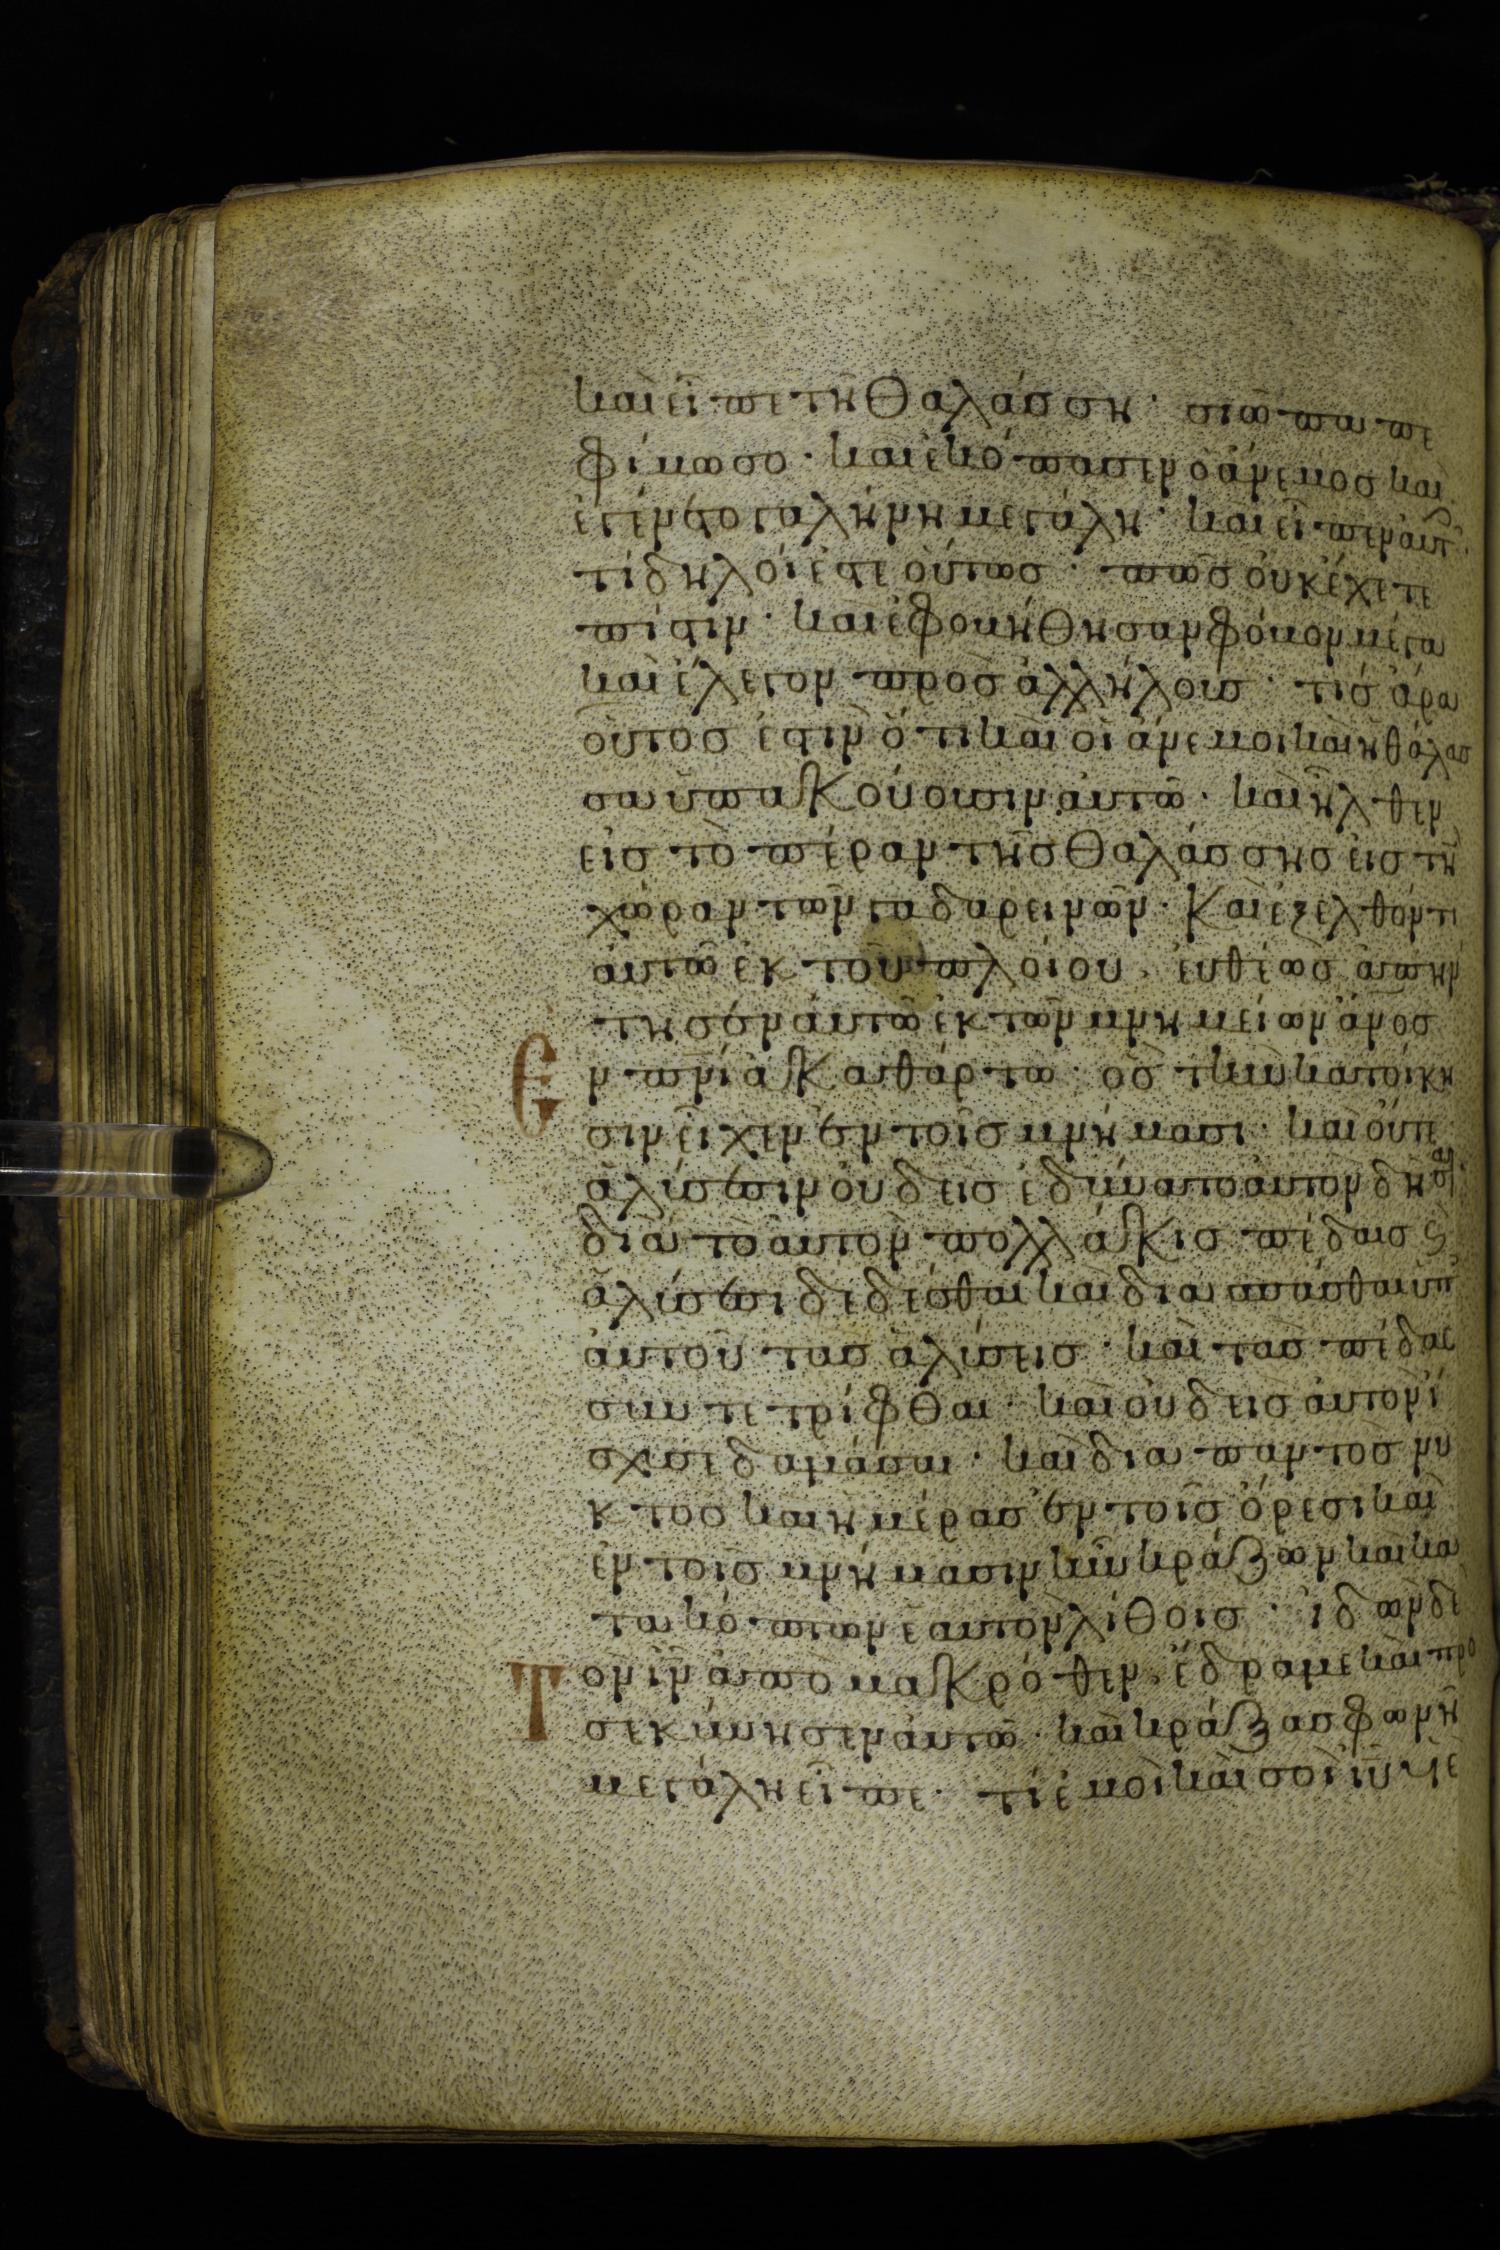 καὶ εἶπε τῆ θαλάσση· σιώπα πε
φίμωσο· καὶ ἐκόπασεν ὁ ἄνεμος καὶ
ἐγένετο γαλήνη μεγάλη· καὶ εἶπεν αὐτ
τί δηλοί ἐστε οὕτως· πῶς οὐκ ἔχετε
πίστιν· καὶ ἐφοβήθησαν φόβον μέγα
καὶ ἔλεγον πρὸς ἀλλήλους· τίς ἄρα
οὗτος ἐστιν ὅτι καὶ οἱ ἄνεμοι καὶ ἡ θάλασ
σα ὑπακούουσιν αὐτῶ· καὶ ἦλθεν
εἰς τὸ πέραν τῆς θαλάσσης εἰς τὴ
χώραν τῶν γαδαρεινῶν· Καὶ ἐξελθόντι
αὐτῶ ἐκ τοῦ πλοίου, εὐθέως ἀπήν
τησεν αὐτῶ ἐκ τῶν μνημείων ἄνος
ἐν πνι ἀκαθάρτω· ὃς τὴν κατοίκη
σιν εἶχεν ἐν τοῖς μνήμασι· καὶ οὔτε
ἁλύσεσιν οὐδεὶς ἐδύνατο αὐτὸν δῆσαι
διὰ τὸ αὐτὸν πολλάκις πέδαις καὶ
ἁλύσεσι δεδέσθαι καὶ διασπάσθαι ὑπ
αὐτοῦ τὰς ἁλύσεις· καὶ τὰς πέδας
συντετρίφθαι· καὶ οὐδεὶς αὐτὸν ἴ
σχυσε δαμάσαι· καὶ διὰ παντὸς νυ
κτος καὶ ἡμέρας ἐν τοῖς ὄρεσι καὶ
ἐν τοῖς μνήμασιν ἦν κράζων καὶ κα
τακόπτων ἑαυτὸν λίθοις· ἰδὼν δὲ
τὸν ιν ἀπὸ μακρόθεν, ἔδραμε καὶ προ
σεκύνησεν αὐτῶ· καὶ κράξας φωνῆ
μεγάλη εἶπε· τί ἐμοὶ καὶ σοὶ ιυ υἱὲ